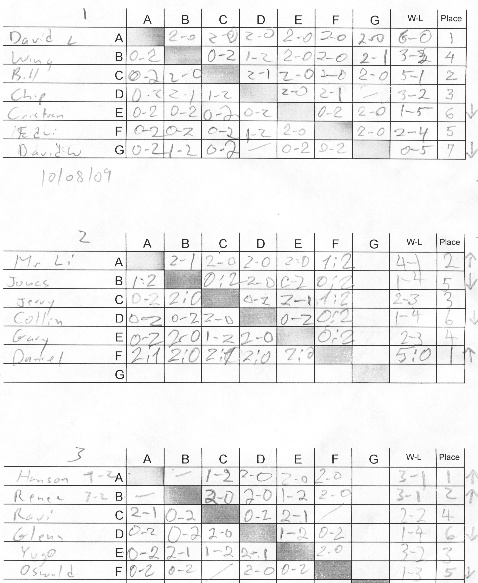 1 A B C D E F G W-L Place
David L A 2-0 2-0 2-0 2-0 2-0 2-0 6-0 1
Wing B 0-2 0-2 1-2 2-0 2-0 2-1 4
Bill C 0-2 2-0 2-1 2-0 2-0 2-0 5-1 2
Chip D 0-2 2-1 1-2 2-0 2-1 — 3-2 3
Cristian E 0-2 0-2 0-2 0-2 0-2 2-0 1-5 6 ↓
Edwi F 0-2 0-2 0-2 1-2 2-0 2-0 2-4 5
David W G 0-2 1-2 0-2 — 0-2 0-2 0-5 7 ↓
10/08/09
2 A B C D E F G W-L Place
Mr Li A 2-1 2-0 2-0 2:0 1:2 4-1 2 ↑
Jonas B 1:2 0:2 2-0 0-2 0:2 1-4 5 ↓
Jerry C 0-2 2:0 0-2 2-1 1:2 2-3 3
Collin D 0-2 0-2 2-0 0-2 0:2 1-4 6 ↓
Gary E 0-2 2:0 1-2 2-0 0:2 2-3 4
Daniel F 2:1 2:0 2:1 2:0 2:0 5:0 1 ↑
G
3 A B C D E F G W-L Place
Hanson A — 1-2 2-0 2-0 2-0 3-1 1 ↑
Renee 3-2 B — 2-0 2-0 1-2 2-0 3-1 2 ↑
Ravi C 2-1 0-2 0-2 2-1 — 2-2 4
Glenn D 0-2 0-2 2-0 1-2 0-2 1-4 6 ↓
Yugo E 0-2 2-1 1-2 2-1 2-0 3-2 3
Oswald F 0-2 0-2 — 2-0 0-2 1-3 5 ↓